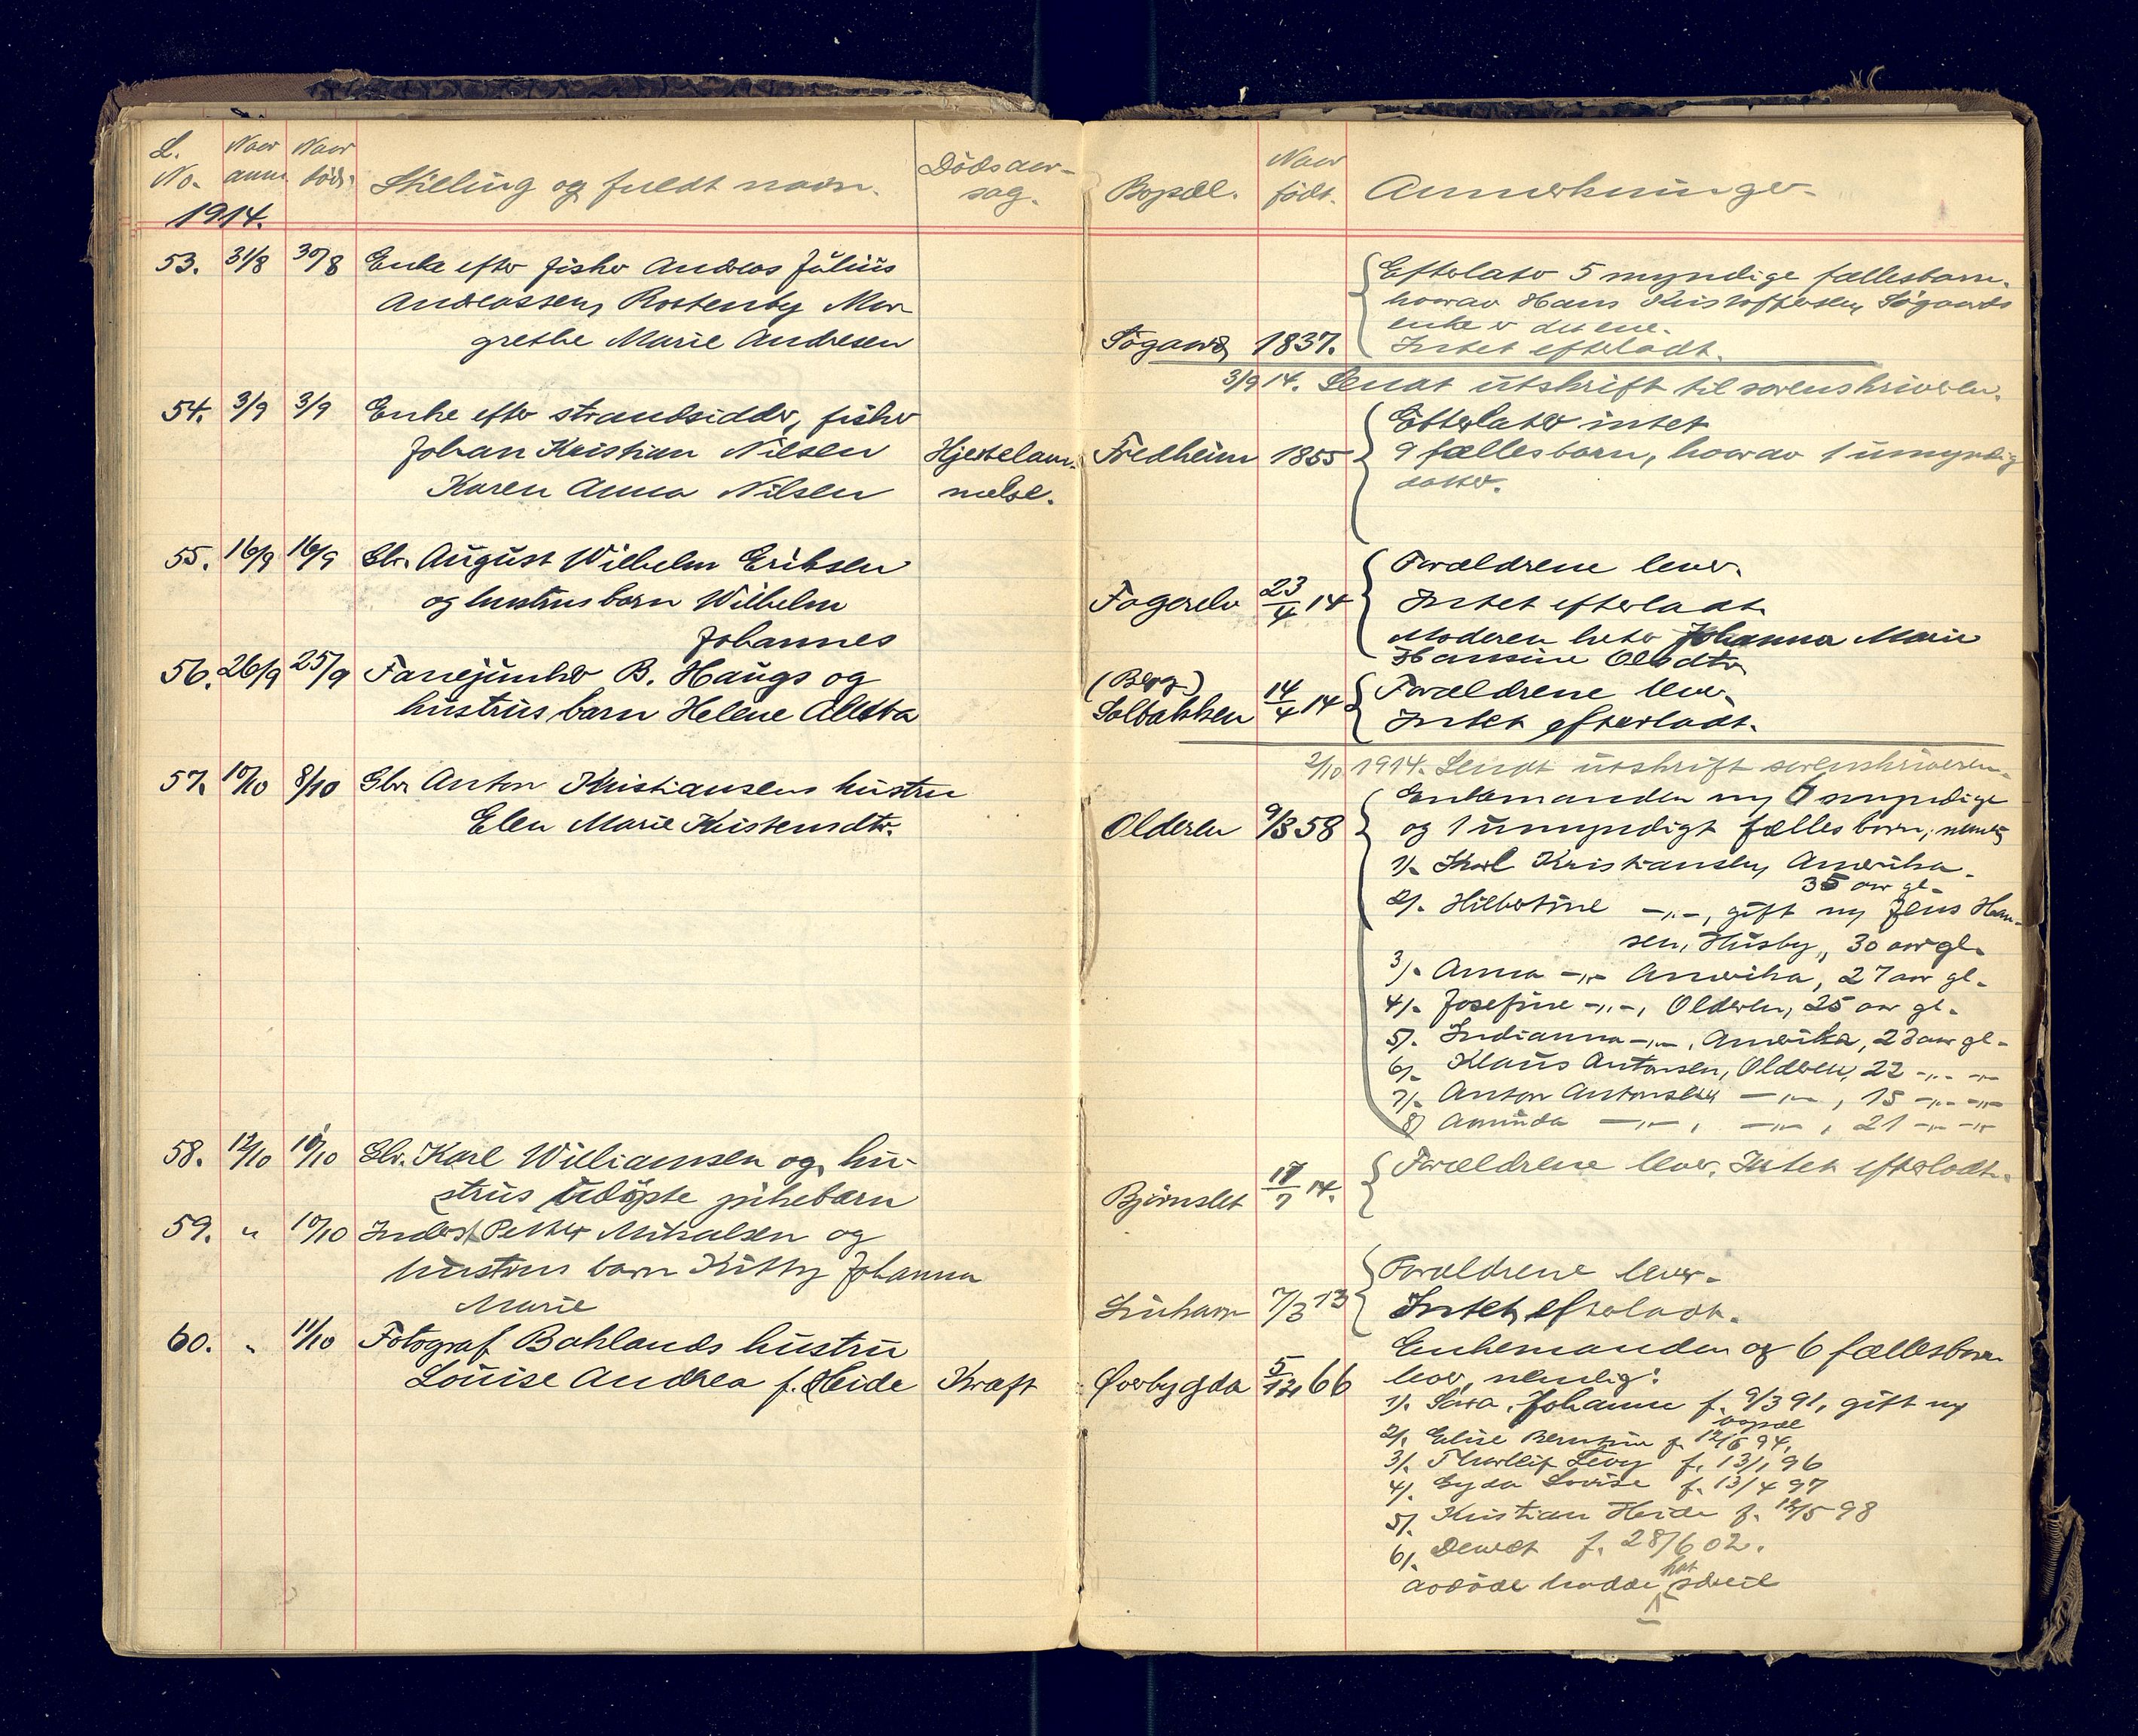 L. No.
Naar anm.
Naar död.
Stilling og fuldt navn.
Dödsaar-
sag.
1914.
53. 31/8 30/8 Enke efter fisker Andreas Julius
Andreassen, Rostenby Mar-
grethe Marie Andresen
54. 3/9 3/9 Enke efter strandsidder, fisker
Johan Kristian Nilsen
Hjertelam-
Karen Anna Nilsen
melse.
55. 16/9 16/9 Gbr. August Wilhelm Eriksen
og hustrus barn Wilhelm
Johannes
56. 26/9 25/9 Fanejunker B. Haugs og
hustrus barn Helene
57. 10/10 8/10 Gbr. Anton Kristiansens hustru
Elen Marie Kristensdtr.
58. 12/10 10/10 Gbr. Karl Williamsen og hu-
strus udöpte pikebarn
59. " 10/10 Inderst Petter Mikalsen og
hustrus barn Kitty Johanna
Marie
60. " 11/10 Fotograf Bahlands hustru
Louise Andrea f. Heide
Kraft
Bopæl.
Naar födt.
Anmerkninger.
Efterlater 5 myndige fællesbarn.
hvorav Hans Kristoffersen, Sögaards
enke er det ene.
Sögaard 1837.
Intet efterladt.
3/9 14. Sendt utskrift til sorenskriveren.
Efterlater intet
Fredheim 1855
9 fællesbarn, hvorav 1 umyndig
datter.
Forældrene lever.
Fagerelv 23/4 14
Intet efterladt.
Moderen heter Johanna Marie
Hansine Olsdtr
(Berg)
Solbakken 14/4 14
Forældrene lever.
Intet efterladt.
2/10 1914. Sendt utskrift sorenskriveren.
Enkemanden og myndige
Olderen 9/3 58
og 1 umyndigt fælles barn, nemlig
1). Karl Kristiansen, Amerika.
35 aar gl.
2). Hilbertine -"-, gift m/ Jens Han-
sen, Husby, 30 aar gl.
3). Anna -"- Amerika, 27 aar gl.
4). Josefine -"-, Olderen, 25 aar gl.
5). Indianna -"-, Amerika, 23 aar gl.
6). Klaus Antonsen, Olderen, 22 -"- -"-
7). Anton Antonsen -"-, 15 -"- -"-
8) Amunda -"-, -"-, 21 -"- -"-
Björnslet 17/7 14.
Forældrene lever. Intet efterladt.
Forældrene lever.
7/3 13
Intet efterladt.
Enkemanden og 6 fællesbarn
Øverbygda 5/12 66
lever, nemlig:
1). Sara Johanne f. 9/3 91, gift m/
2). Elise Berntine f. 12/6 94,
3). Thorleif Levy f. 13/1 96
4). Gyda Lovise f. 13/4 97
5). Kristian Heide f. 12/5 98
6). f. 28/6 02.
Avdöde hadde hat skreil